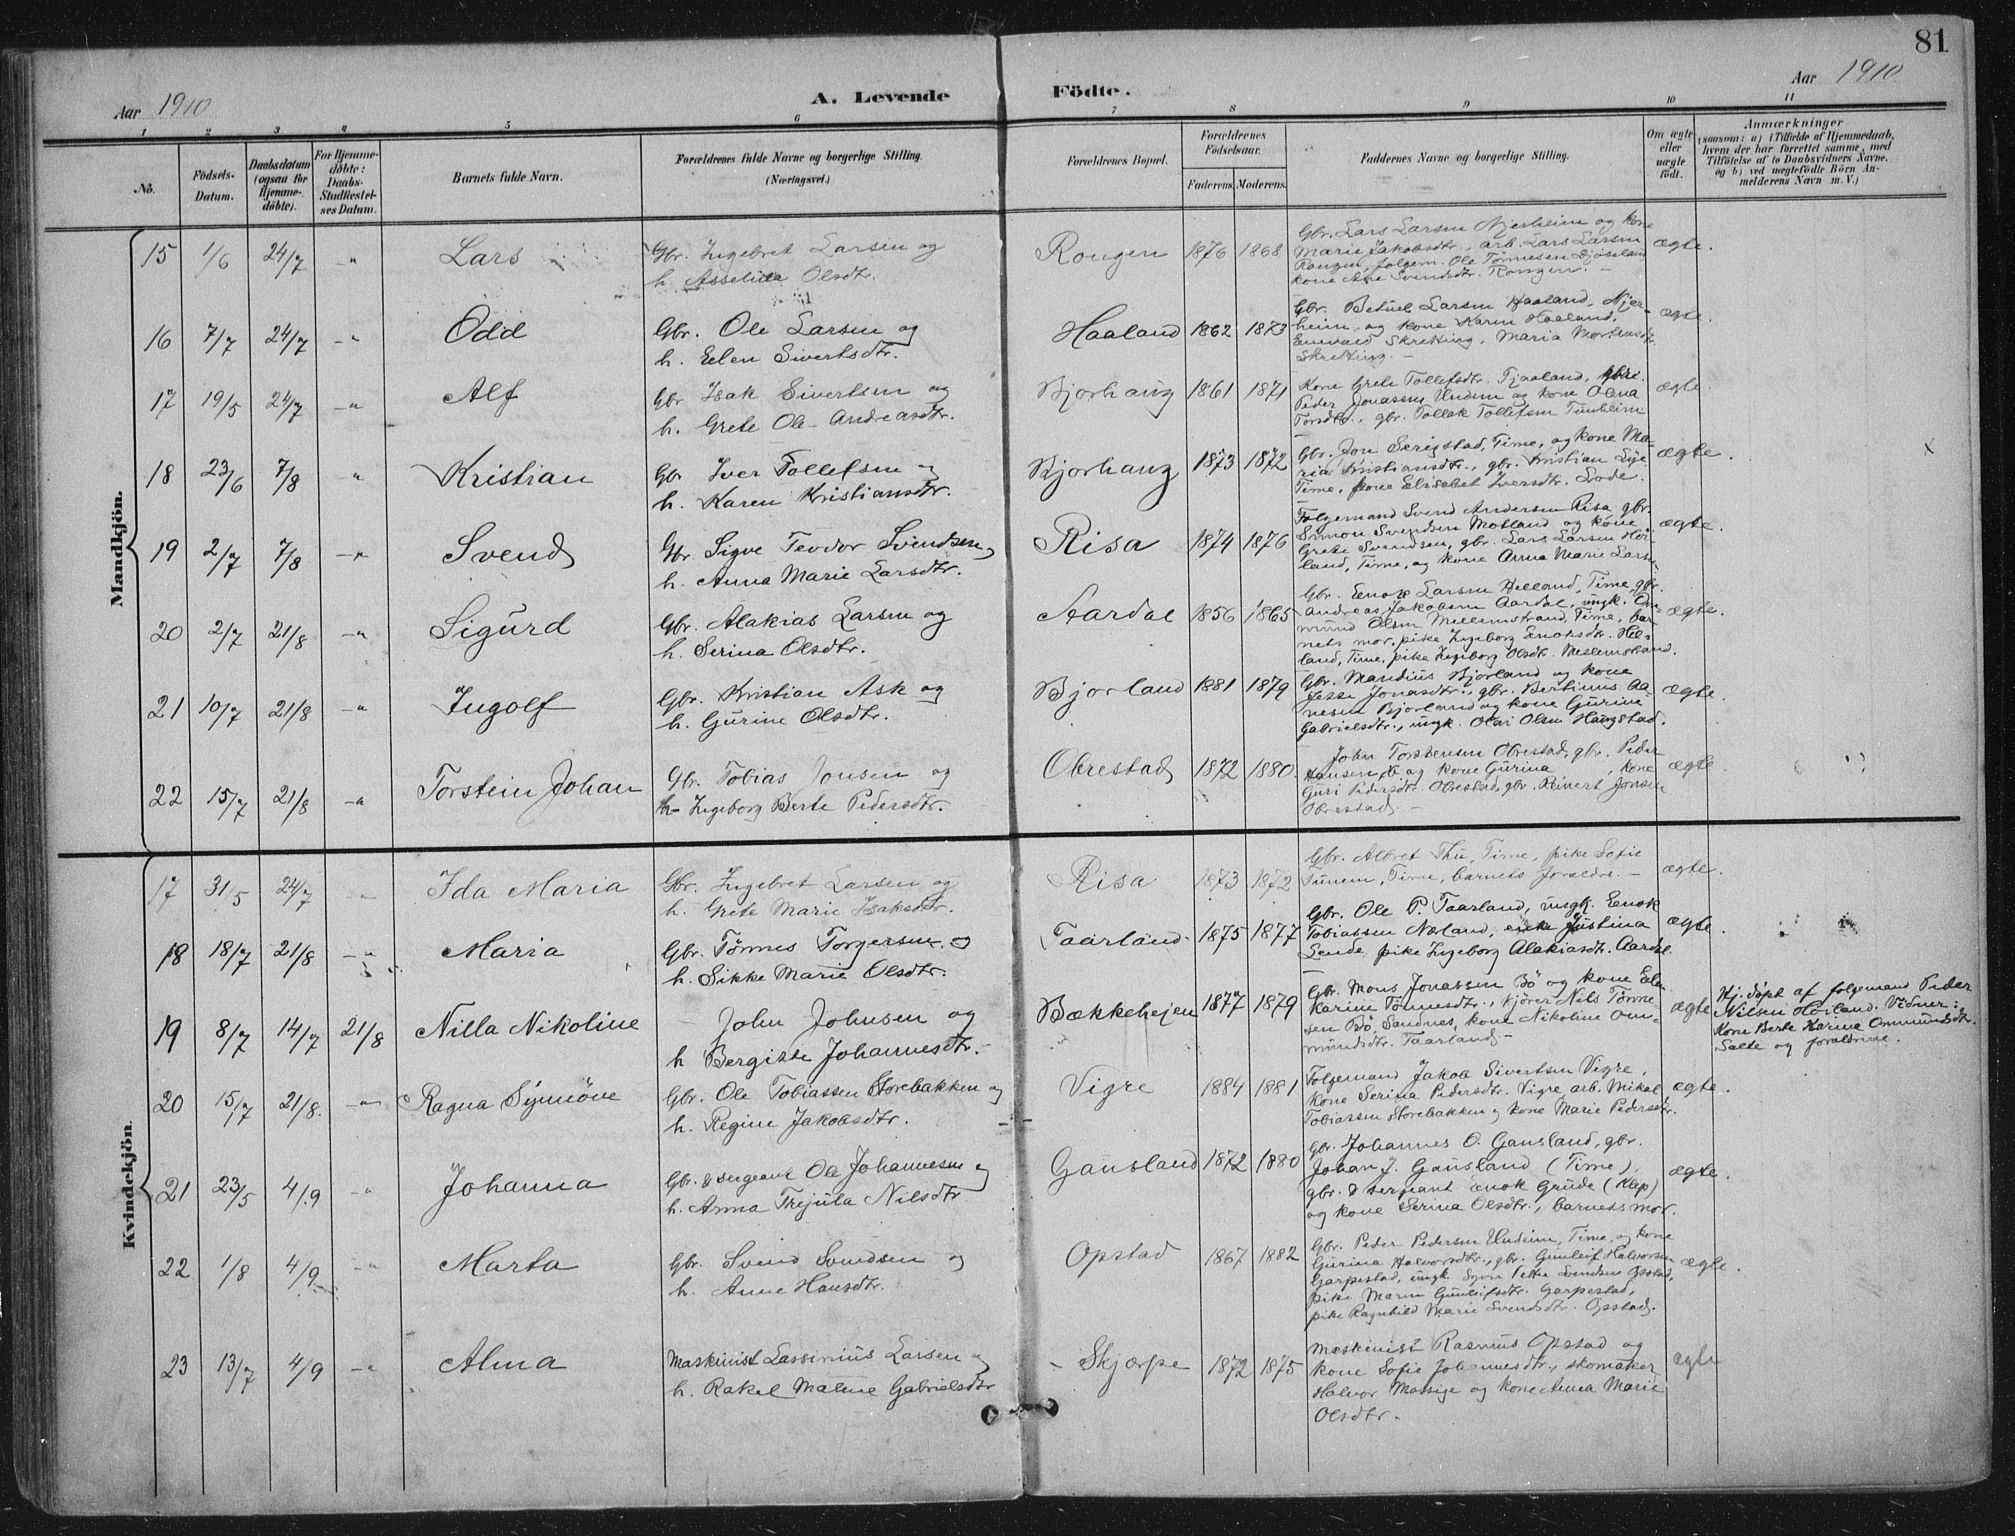 81
Aar 1910
A. Levende Födte.
Aar 1910
1 2 3 4 5 6 7 8 9 10 11
No.
Födsels-
Datum.
Daabsdatum
(ogsaa for
Hjemme-
döbte).
For Hjemme-
döbte:
Daabs-
Stadfæstel-
ses Datum.
Barnets fulde Navn.
Forældrenes fulde Navne og borgerlige Stilling.
(Næringsvei.)
Forældrenes Bopæl.
Forældrenes
Födselsaar.
Faderens. Moderens.
Faddernes Navne og borgerlige Stilling.
Om ægte
eller
uægte
födt.
Anmærkninger
(saasom: a) i Tilfælde af Hjemmedaab,
hvem der har forrettet samme, med
Tilföielse af to Daabsvidners Navne,
og b) ved uægtefödte Börn An-
melderens Navn m. V.)
Mandkjön.
15 1/6 24/7 -"- Lars
Gbr. Ingebret Larsen og
h. Asselina Olsdtr.
Rongen 1876 1868
Gbr. Lars Larsen Njerheim og kone
Marie Jakobsdtr., arb. Lars Larsen
Rongen, følgem. Ole Tønnesen
kone Ane Svendsdtr. Rongen. -
ægte.
16 7/7 24/7 -"- Odd
Gbr. Ole Larsen og
h. Elen Sivertsdtr.
Haaland 1862 1873
Gbr. Betuel Larsen Haaland, Njer-
heim, og kone Karen Haaland,
Enevald Skretting, Maria Mortensdtr.
Skretting. -
ægte.
17 19/5 24/7 -"- Alf
Gbr Isak Sivertsen og
h. Grete Ole-Andreasdtr.
Bjorhaug 1861 1871
Kone Grete Tollefsdtr. Tjaaland, gbr.
Peder Jonassen Undem og kone Olena
Torsdtr., gbr. Tollak Tollefsen Tunheim
ægte.
18 23/6 7/8 " Kristian
Gbr Iver Tollefsen og
h. Karen Kristiansdtr.
Bjorhaug 1873 1872
Gbr. Jon Serigstad, Time, og kone Ma-
ria Kristiansdtr., gbr. Kristian Lye
Time, kone Elisabet Iversdtr. Lode.
ægte. x
19 2/7 7/8 -"- Svend
Gbr. Sigve Teodor Svendsen,
h. Anna Marie Larsdtr.
Risa 1874 1876
Følgemand Svend Andersen Risa, gbr.
Simon Svendsen Motland og kone
Grete Svendsen, gbr. Lars Larsen Hør-
land, Time, og kone Anna Marie Lars-
ægte.
20 2/7 21/8 -"- Sigurd
Gbr. Alakias Larsen og
h. Serina Olsdtr.
Aardal 1856 1865
Gbr. Enok Larsen Helland, Time, gbr.
Andreas Jakobsen Aardal, ungk. Om-
mund Olsen Mellemstrand, Time, bar-
nets mor, pike Ingeborg Enoksdtr. Hel-
land, Time, pike Ingeborg Olsdtr. Mellemstrand.
ægte.
21 10/7 21/8 -"- Ingolf
Gbr. Kristian Ask og
h. Gurine Olsdtr.
Bjorland 1881 1879
Gbr. Mandius Bjorland og kone
Jonasdtr., gbr. Bertinus Aa-
nesen Bjorland og kone Gurine
Gabrielsdtr., ungk. Olai Olsen Haugstad.
ægte.
22 15/7 21/8 -"- Torstein Johan
Gbr. Tobias Jonsen og
h. Ingeborg Berte Pedersdtr.
Obrestad 1872 1880
John Torstensen Obrestad, gbr. Peder
Hansen og kone Gurina , kone
Guri Pedersdtr. Obrestad, gbr. Reinert Jonsen
Obrestad, -
ægte.
Kvindekjön.
17 31/5 24/7 -"- Ida Maria
Gbr. Ingebret Larsen og
h. Grete Marie Isaksdtr.
Risa 1873 1872
Gbr. Albret Thu, Time, pike Sofie
Tunem, Time, barnets foreldre. -
ægte.
18 18/7 21/8 -"- Maria
Gbr. Tønnes Torgersen og
h. Sikke Marie Olsdtr.
Taarland 1875 1877
Gbr. Ole P. Taarland, ungk. Enok
Tobiassen Næland, enke Justina
Lende, pike Ingeborg Alakiasdtr. Aardal.
ægte.
19 8/7 14/7 21/8 Nilla Nikoline
John Johnsen og
h Bergitte Johannesdtr.
Bækkehejen 1877 1879
Gbr. Mons Jonassen Bö og kone Ele
Karine Tønnesdtr., kjörer Nils Tønne-
sen Bö, Sandnes, kone Nikoline Om-
mundsdtr. Taarland, -
ægte
Hj. döpt af følgemand Peder
Nilsen Hörland. Vidner:
Kone Berte Karine Ommundsdtr.
Salte og forældrene.
20 15/7 21/8. -"- Ragna Synnöve
Gbr. Ole Tobiassen Storebakken og
h. Regine Jakobsdtr.
Vigre 1884 1881
Følgemand Jakob Sivertsen Vigre,
kone Serina Pedersdtr. Vigre, arb. Mikal
Tobiassen Storebakken og kone Marie Pedersdtr.
ægte.
21 23/5 4/9 -"- Johanna
Gbr. & sergeant Ole Johannesen og
h. Anna Thejula Nilsdtr
Gausland 1872 1880
Gbr. Johannes O. Gausland, gbr.
Johan J. Gausland (Time),
gbr. & serjeant Enok Grude (Klep)
og kone Serina Olsdtr., barnets mor.
ægte.
22 1/8 4/9 -"- Marta
Gbr. Svend Svendsen og
h. Anne Hansdtr.
Opstad 1867 1882
Gbr. Peder Pedersen Undeim, Time, og kone
Gurina Halvorsdtr., gbr. Gunleif Halvorsen
Garpestad, ungk Sven Petter Svendsen Opstad,
pike Maren Gunleifsdtr. Garpestad,
pike Ragnhild Marie Svendsdtr. Opstad.
ægte.
23 13/7 4/9 -"- Alma
Maskinist Lassinius Larsen og
h. Rakel Malene Gabrielsdtr
Skjærpe 1872 1875
Maskinist Rasmus Opstad og
kone Sofie Johannesdtr., skomaker
Halvor Mossige og kone Anna Marie
Olsdtr.
ægte